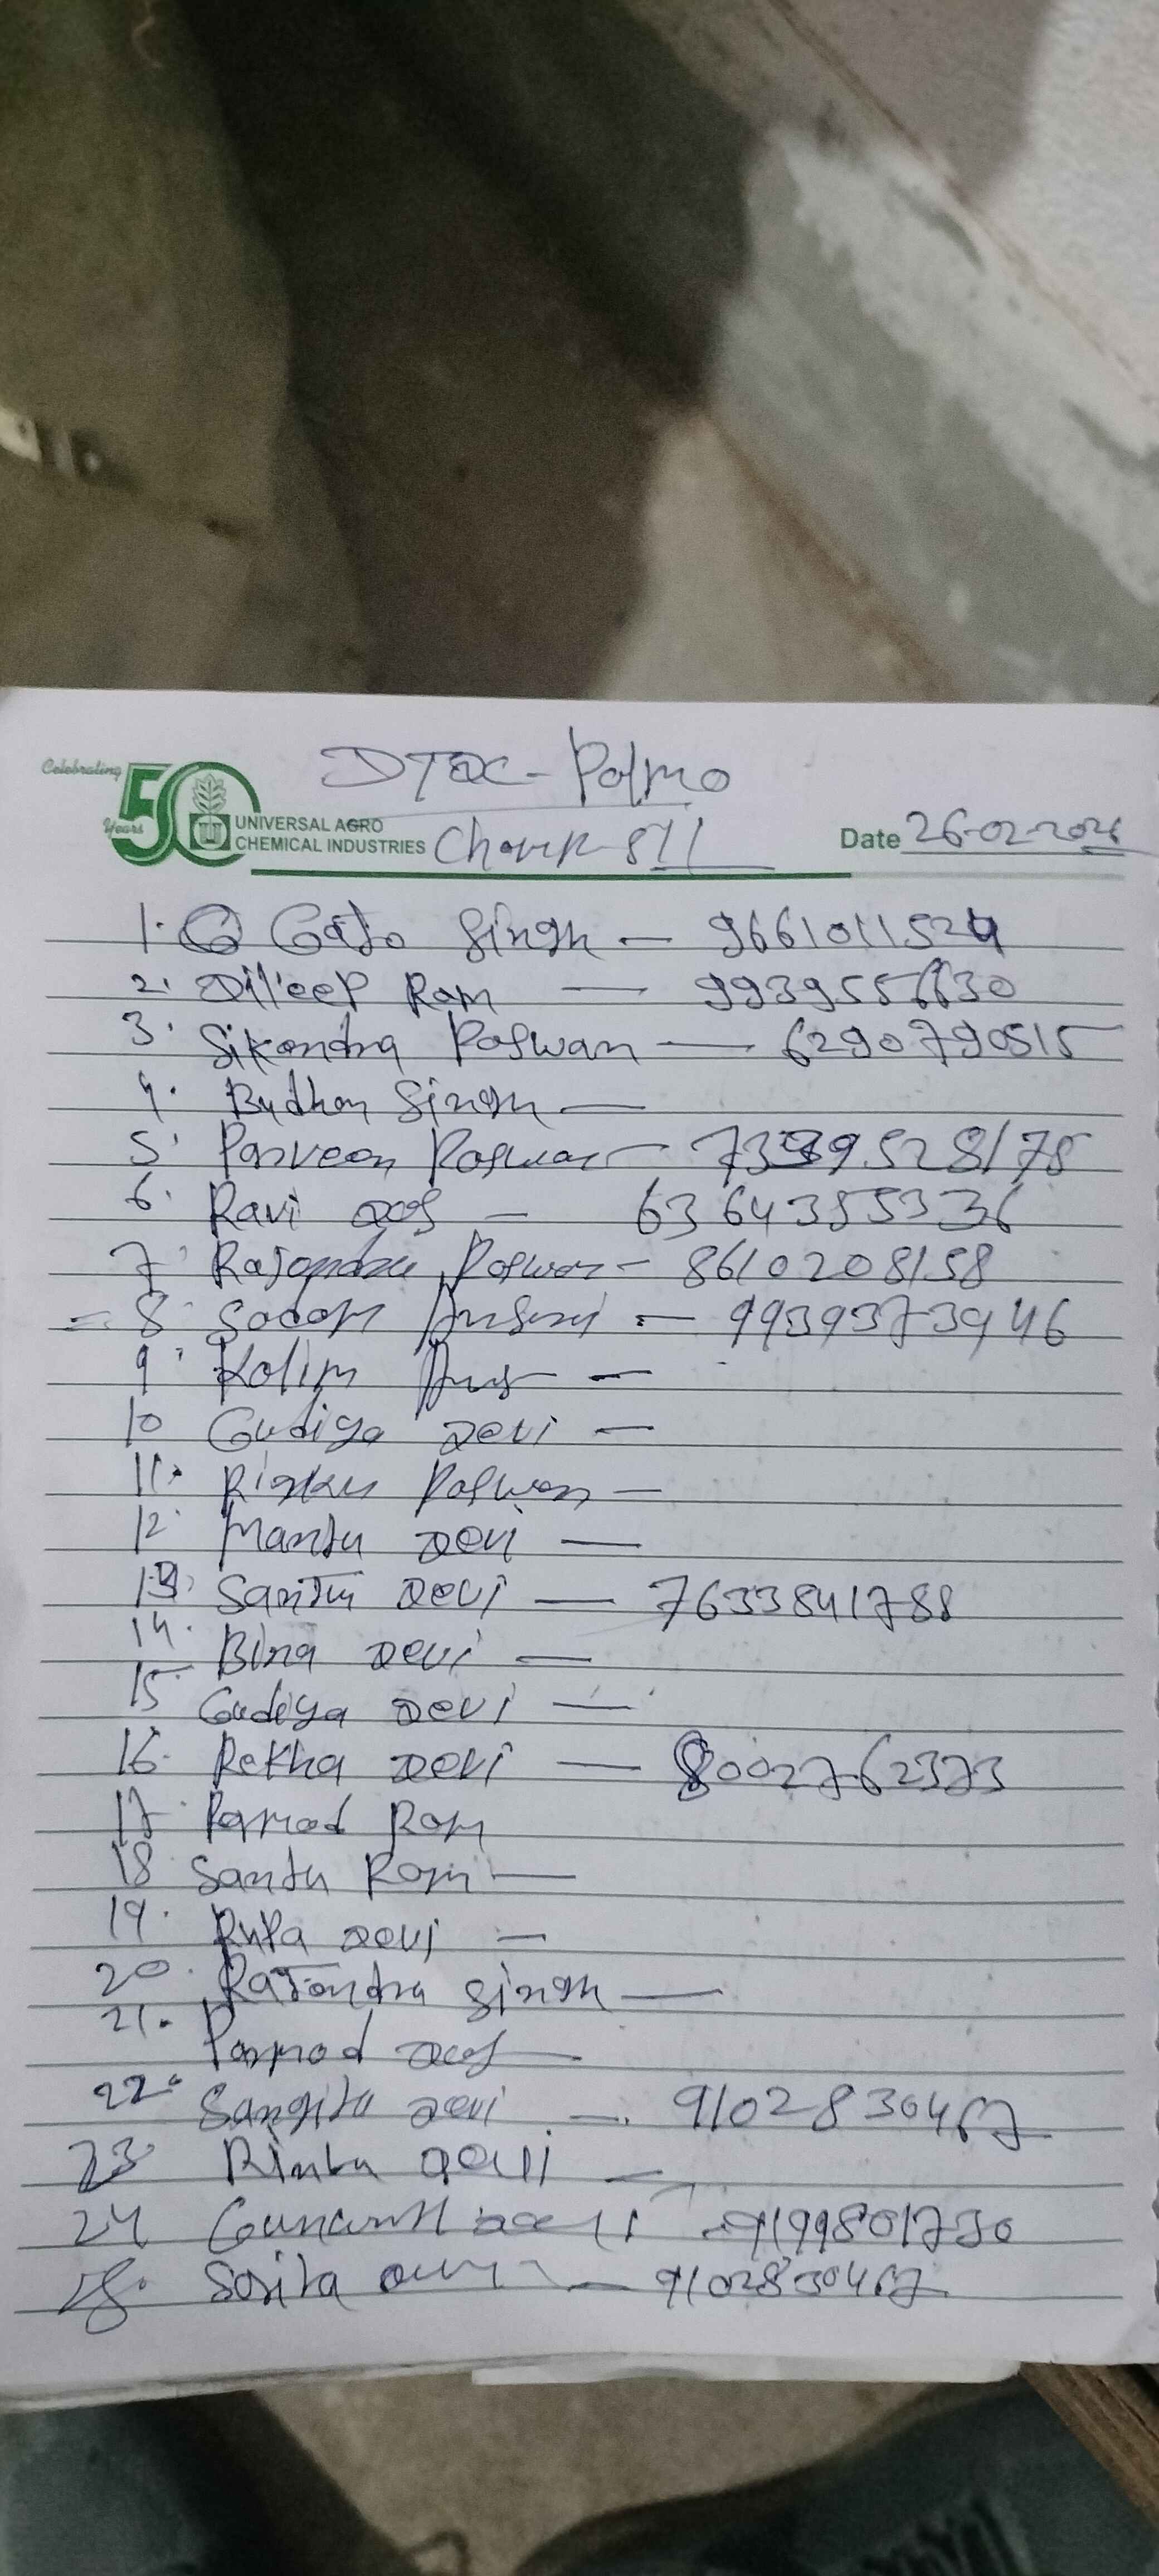 Celebrating
50
Years
UNIVERSAL AGRO
CHEMICAL INDUSTRIES
Date 26-02-2026
1. Gajo Singh — 9661011524
2. Dileep Ram —
3. Sikandra Paswan — 6290790515
4. Budhan Singh —
5. Parveen Paswan —
6. Ravi Das — 6364355336
7. Rajendra Paswan — 8610208158
8. Ansari — 9939373946
9. Kalim —
10 Gudiya Devi —
11. Rinku Paswan —
12. Mantu Devi —
13. Devi — 7633841788
14. Bina Devi —
15 Gudiya Devi —
16. Rekha Devi — 8002762373
17. Parmod Ram
18 Santu Ram —
19. Rupa Devi —
20. Rajendra Singh —
21. Parmod Das —
22. Sangita Devi — 9102830467
23 Devi —
24
25. Sarita — 9102830467